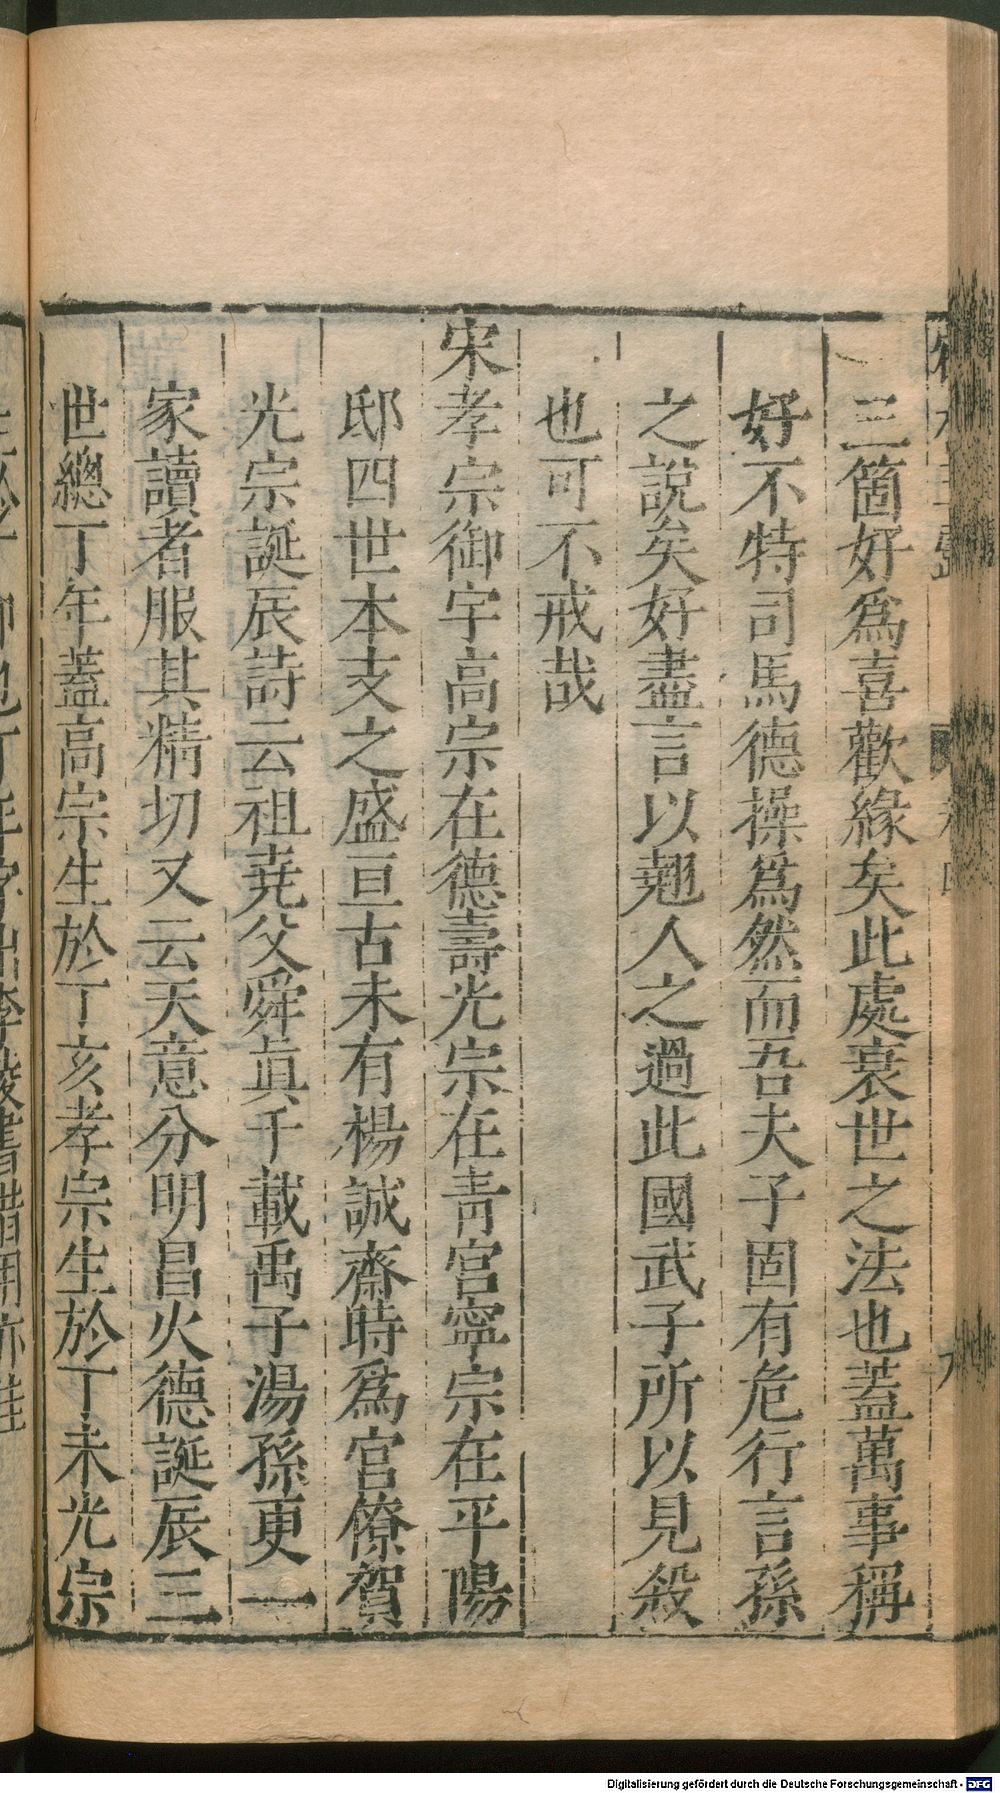 三箇好爲喜歡緣矣此處衰世之法也蓋萬事稱
好不特司馬德操爲然而吾夫子固有危行言孫
之說矣好盡言以翹人之過此國武子所以見殺
也可不戒哉
宋孝宗御宇高宗在德壽光宗在靑宮寧宗在平陽
邸四世本支之盛亘古未有楊誠齋時爲宮僚賀
光宗誕辰詩云祖堯父舜眞千載禹子湯孫更一
家讀者服其精切又云天意分明昌火德誕辰三
世總丁年蓋高宗生於丁亥孝宗生於丁未光宗
Digitalisierung gefördert durch die Deutsche Forschungsgemeinschaft - DFG